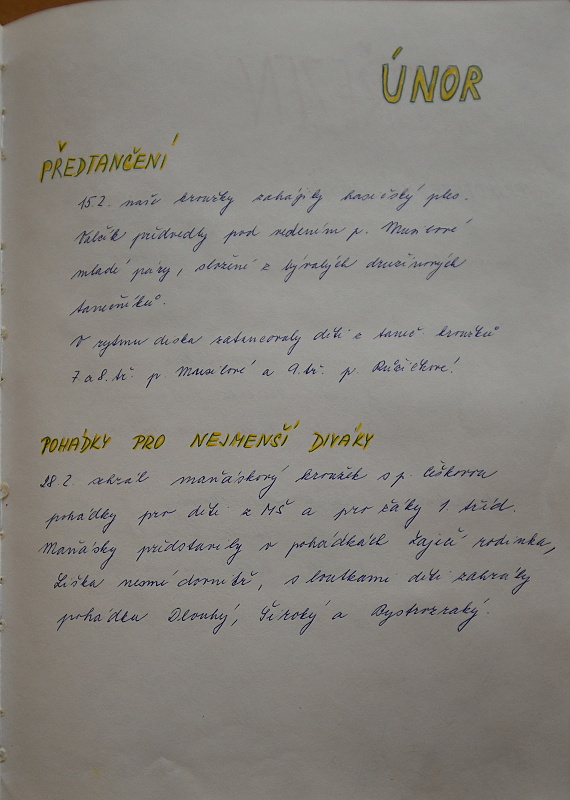 ÚNOR
PŘEDTANČENÍ
15.2. naše kroužky zahájily hasičský ples.
Valčík předvedly pod vedením p. Musilové
mladé páry, složené z bývalých družinových
tanečníků.
V rytmu diska zatancovaly děti z taneč. kroužků
7. a 8. tř. p. Musilové a 9. tř. p. Růžičkové!
POHÁDKY PRO NEJMENŠÍ DIVÁKY
28.2. sehrál maňáskový kroužek s p.
pohádky pro děti z MŠ a pro žáky 1. tříd.
Maňásky představily v pohádkách Zaječí rodinka,
Liška nesmí dovnitř, s loutkami děti zahrály
pohádku Dlouhý, Široký a Bystrozraký.